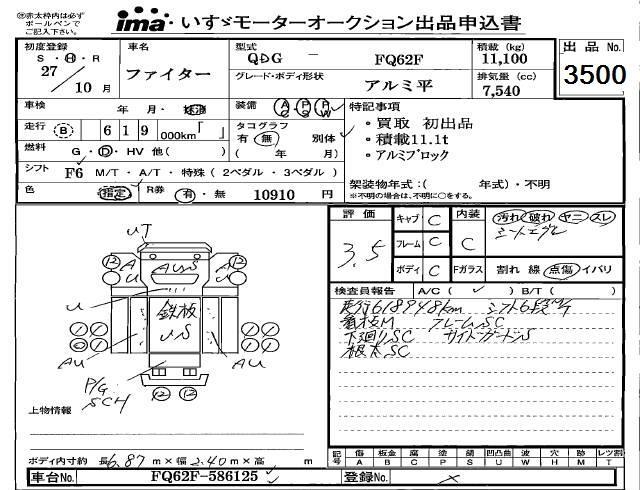 ㊟赤太枠内は必ず
ボールペンで
ご記入下さい。
ima いすゞモーターオークション出品申込書
初度登録
S・H・R
27/10月
車名
ファイター
型式
QDG － FQ62F
グレード・ボディ形状
アルミ平
積載 (kg)
11,100
排気量 (cc)
7,540
出品 No.
3500
車検 年 月・
装備 AC PS PW
走行 (B) 619 000km「 」
タコグラフ 有 無 別体
( 年 月)
燃料 G・D・HV 他( )
シフト F6 M/T・A/T・特殊(2ペダル・3ペダル)
色 指定 R券 有・無 10910 円
特記事項
・買取 初出品
・積載11.1t
・アルミブロック
架装物年式:( 年式)・不明
※不明の場合は、不明に○をする。
評価
3.5
キャブ C
フレーム C
ボディ C
内装 C
Fガラス
汚れ 破れ ヤニ スレ
シートエグレ
割れ 線 点傷 イバリ
検査員報告 A/C( ✓ ) B/T( )
走行618948km シフト6段M/T
看板M フレームSC
下廻りSC サイドガードS
根太SC
UT
⑫ A AUS A ⑫
U
鉄板
US
AU AU
P/G
SCH
⑫ ⑫
上物情報
ボディ内寸約 長6.87m×幅2.40m×高 m
記号 傷 A 板金 B 腐 C 塗 P 錆 S 凹凸曲 U 波 W 穴 H 跡 M レツ割 T
車台No. FQ62F-586125
登録No.